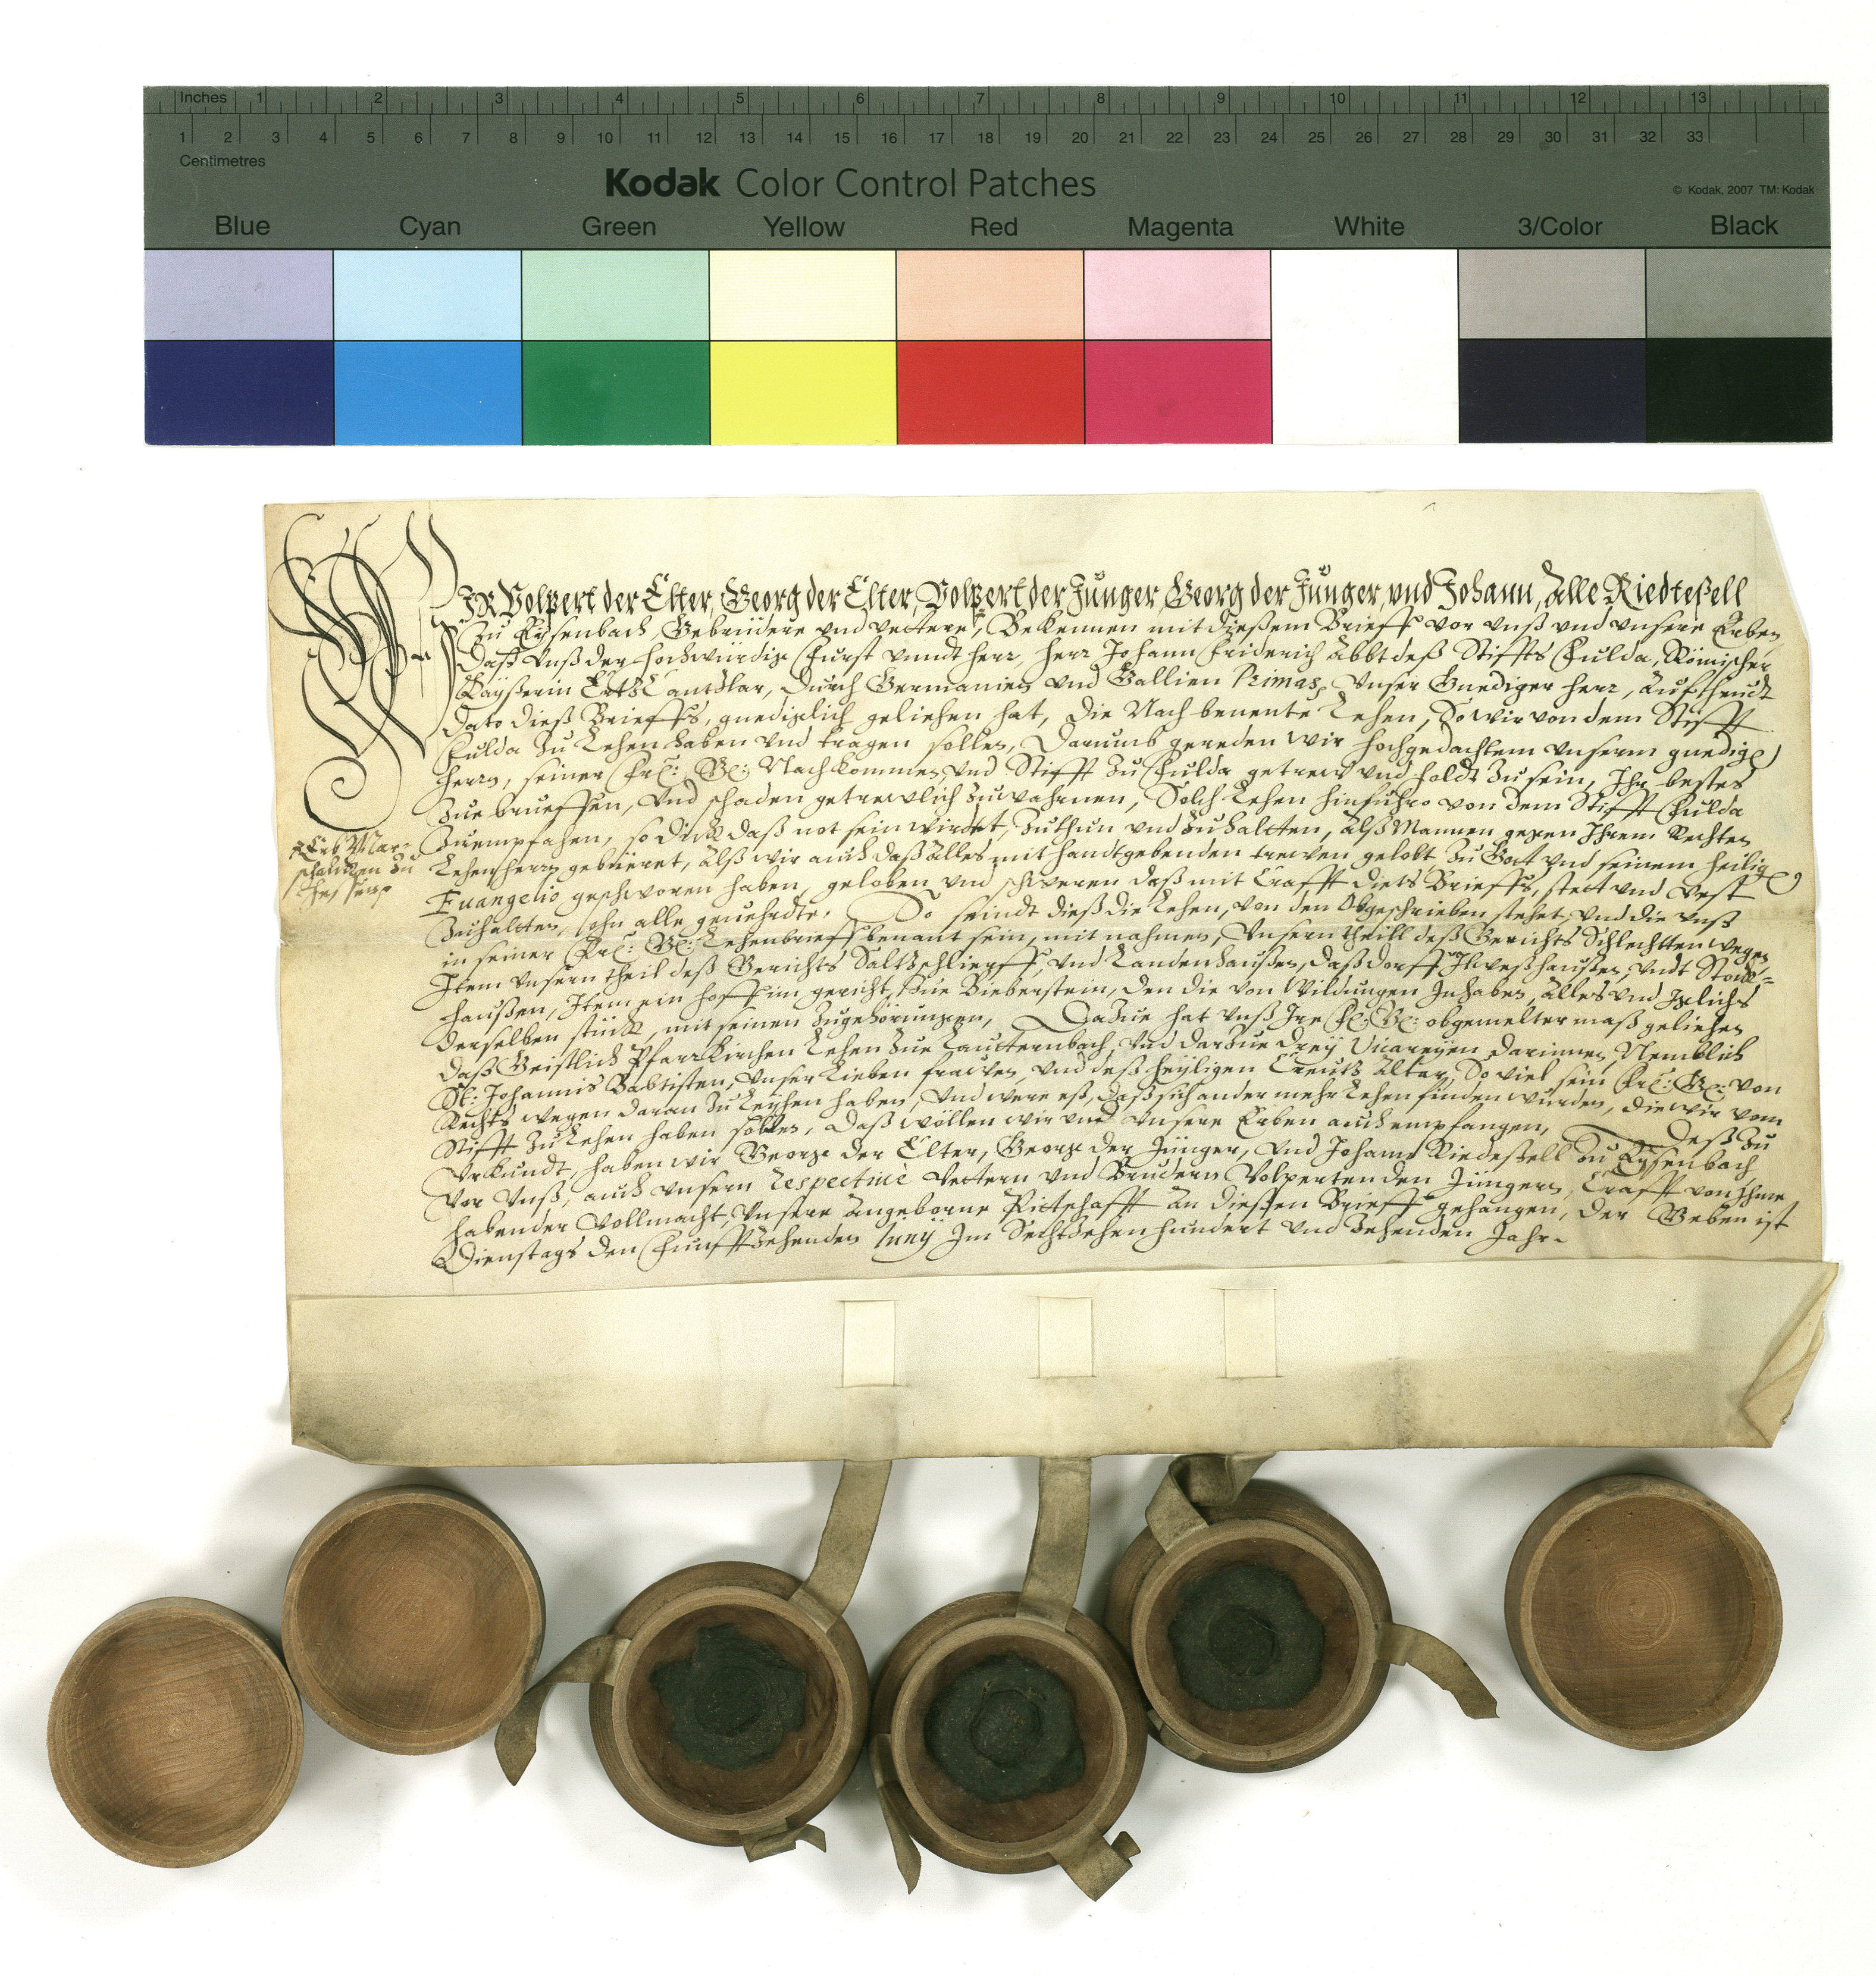 Inches 1 2 3 4 5 6 7 8 9 10 11 12 13
1 2 3 4 5 6 7 8 9 10 11 12 13 14 15 16 17 18 19 20 21 22 23 24 25 26 27 28 29 30 31 32 33
Centimetres
Kodak Color Control Patches
© Kodak, 2007 TM: Kodak
Blue Cyan Green Yellow Red Magenta White 3/Color Black
WIR Volpert der Elter, Georg der Elter, Volpert der Junger, Georg der Junger, vnd Johann, Alle Riedteßell
Zu Eysenbach, Gebrüdere vnd vettere, Bekennen mit dießem Brieff vor vnß vnd vnsere Erben
Daß Vnß der hochwürdig Furst vnndt herr, herr Johann Friderich Abbt deß Stiffts Fulda, Römischer
Kayßerin ErtzCantzlar, durch Germanien vnd Gallien Primas, Vnser Gnediger herr, Auff heudt
dato dieß Brieffs, gnediglich geliehen hat, die Nachbenente Lehen, So wir von dem Stifft
Fulda zu Lehen haben vnd tragen sollen, Darumb gereden wir hochgedachtem vnserm gnedigen
herrn, seiner Frl: Ge: Nachkommen, vnd Stifft zu Fulda getrew vnd holdt zu sein, Ihr bestes
Zue brueffen, vnd schaden getrewlich zuwahrnen, Solch Lehen hinfuhro von dem Stifft Fulda
Zuempfahen, so dick daß not sein wirdet, zuthun vnd zuhaltten, Alß Mannen gegen Ihrem Rechten
Erb Mar-
schalcken zu
Hessen
Lehenherrn gebüeret, Alß wir auch daß Alles mit handtgebenden trewen gelobt zu Gott vnd seinem heiligen
Euangelio geschworen haben, geloben vnd schweren daß mit Crafft diets Brieffs, stett vnd vest
Zuhaltten, ohn alle geuehrdte, So seindt dieß die Lehen, von den Obgeschrieben stehet, vnd die vnß
in seiner Frl: Ge: Lehenbrieff benant sein, mit nahmen, Vnsern theill deß Gerichts Schlechttenwegen,
Item Vnsern theil deß Gerichts Saltzschlierff, vnd Landenhaußen, daß dorff Ilweßhaußen, vndt Stock-
haußen, Item ein hoff im gericht zue Bieberstein, den die von Wildungen Inhaben, Alles vnd Iglichs
derselben stückh, mit seinen zugehörungen, Dazue hat vnß Ire Fl: Ge: obgemelter maß geliehen
daß Geistlich Pfarrkirchen Lehen zue Lautternbach, vnd darzue drey Vicareyen darinnen, Nemblich
St: Johannis Babtisten, Vnser Lieben frawen, vnd deß heyligen Creutz Altar, So viel sein Frl: Ge: von
Rechts wegen daran zu Leyhen haben, Vnd were eß, daß sich ander mehr Lehen finden würden, die wir vom
Stifft zu Lehen haben sollen, daß wöllen wir vnd vnsere Erben auch empfangen, Deß zu
Vrkundt, haben wir Georg der Elter, Georg der Jünger, vnd Johann Riedeßell zu Eysenbach
vor Vnß, auch vnsern respectiuè vettern vnd Brudern Volperten den Jüngern, Crafft von Ihme
habender Vollmacht, Vnsere Angeborne Pittschafft An dießen Brieff gehangen, der Geben ist
Dienstags den Funfftzehenden Iunij Im Sechtzehenhundert vnd Zehenden Jahr.